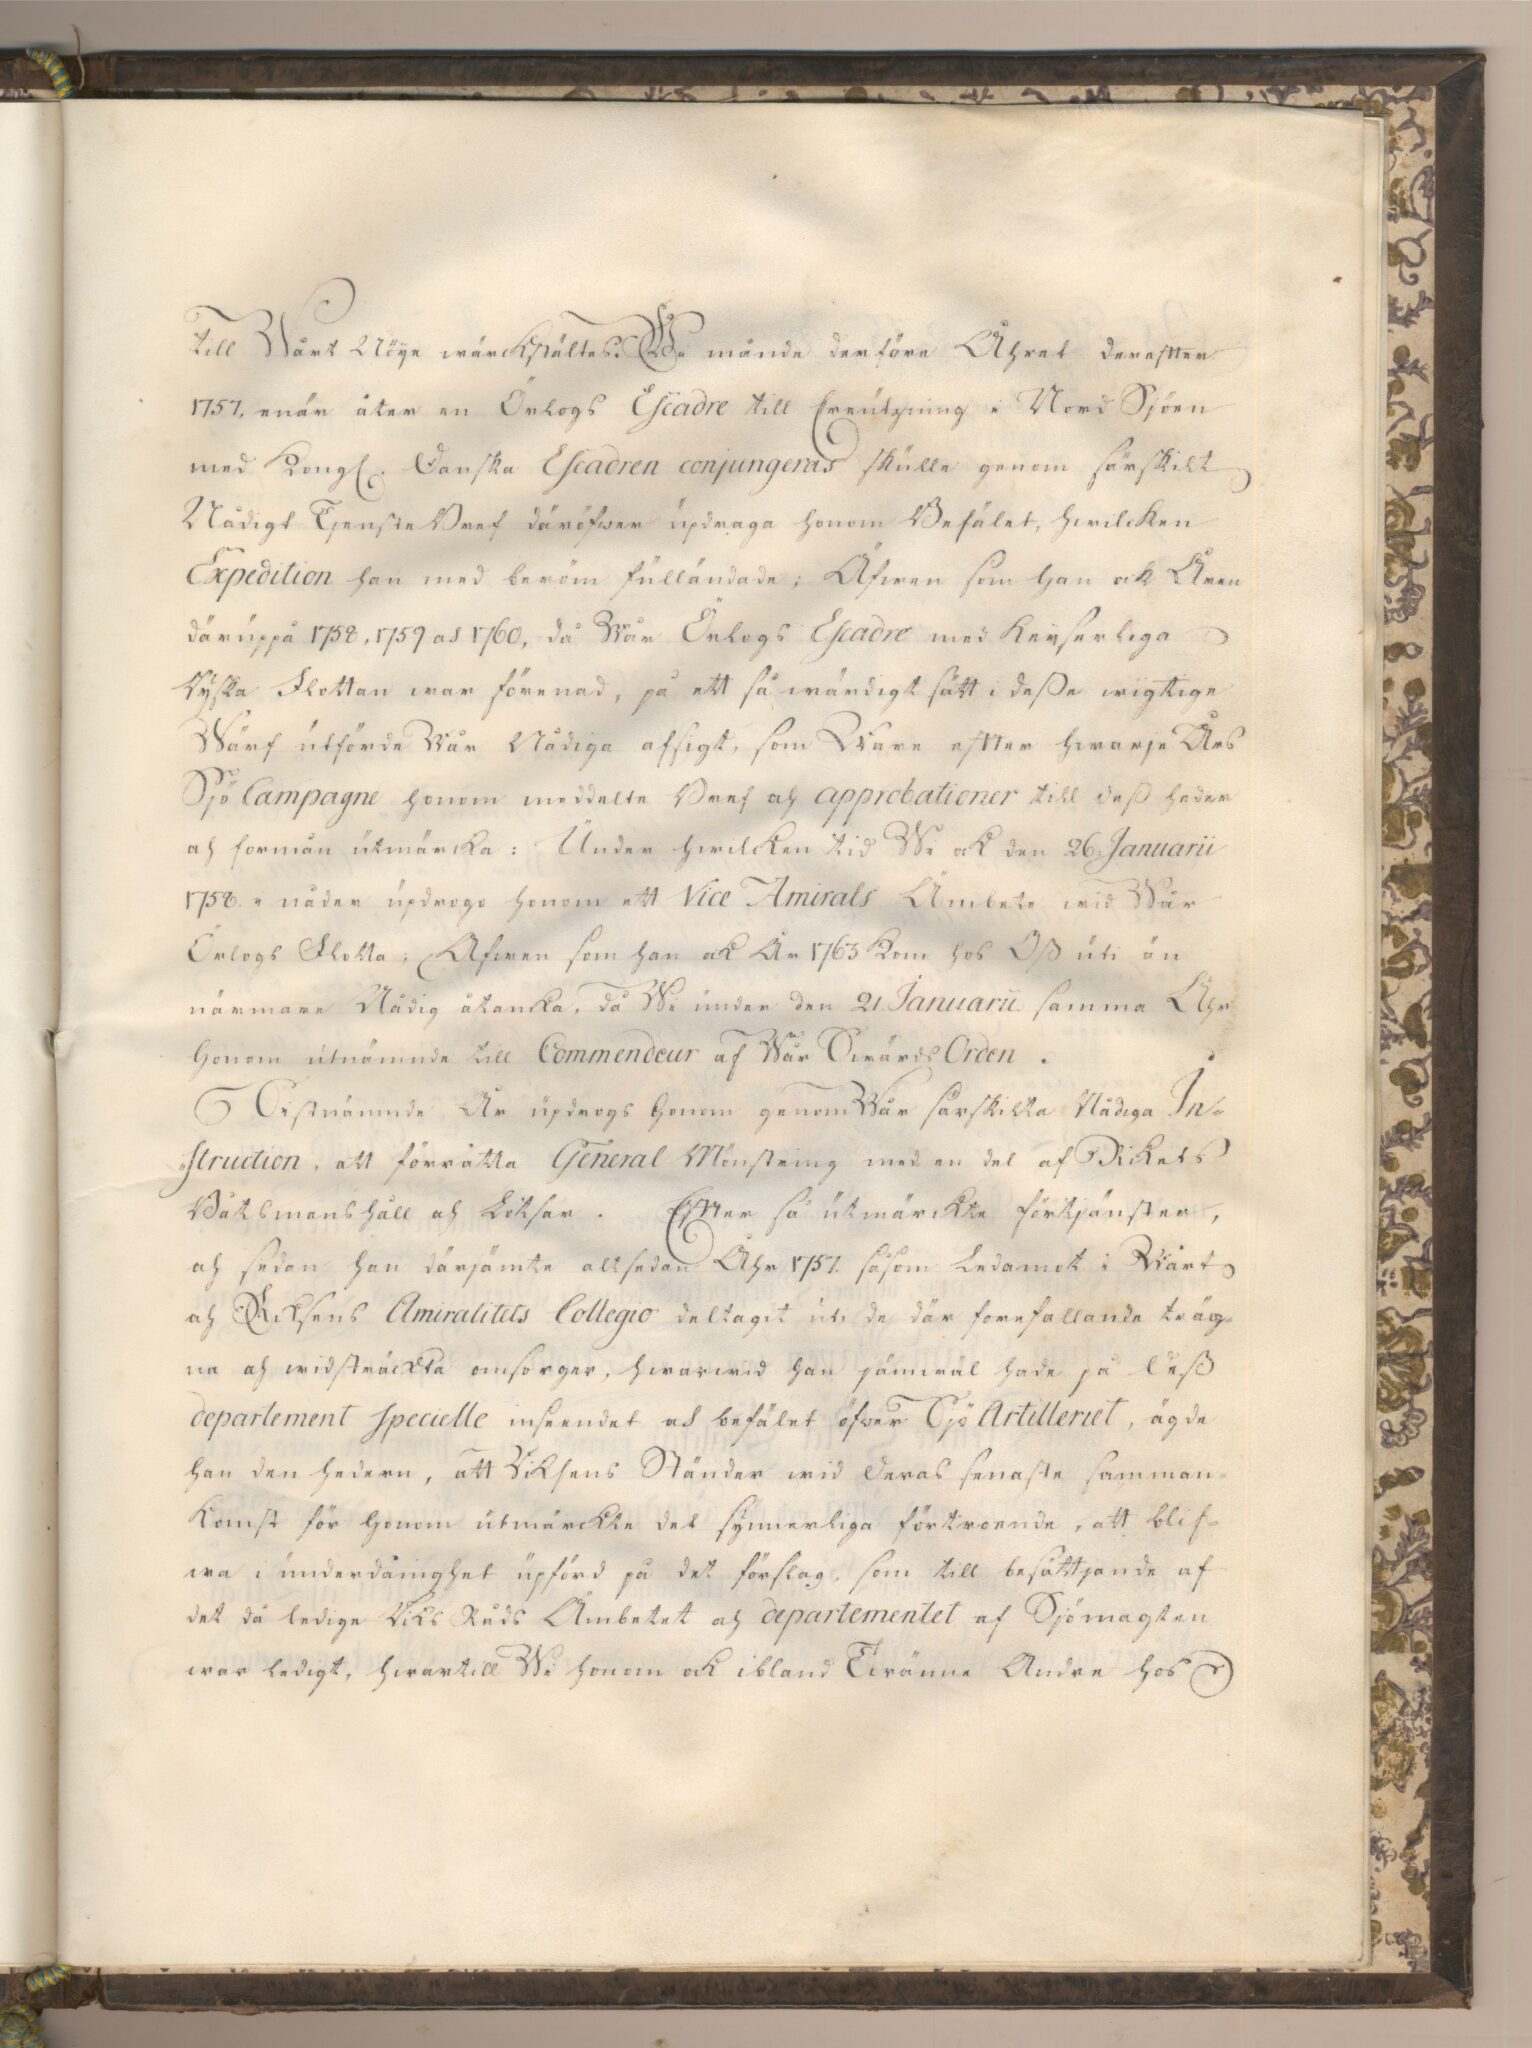 till Wårt Nöye wärckstältes. Wi månde derföre Åhret derefter
1757. enär åter en Örlogs Escadre till Creützning i Nord Sjöen
med Kongl. Danska Escadren conjungeras skülle genom särskilt
Nådigt Tjenste Bref däröfwer üpdraga honom Befälet, hwilcken
Expedition han med beröm fülländade; Äfwen som han ock Åren
därüppå 1758, 1759 och 1760, då Wår Örlogs Escadre med Keyserliga
Ryska Flottan war förenad, på ett så wärdigt sätt i deße wigtige
Wärf ütförde Wår Nådiga afsigt, som Wåre efter hwarje Års
Sjö Campagne honom meddelte Bref och approbationer till deß heder
och formån ütmärcka: Ünder hwilcken tid Wi ock den 26. Januarii
1758. i nåder üpdrogo honom ett Vice Amirals Ämbete wid Wår
Örlogs Flotta; Äfwen som han ock År 1763 kom hos Oß üti än
närmare Nådig åtancka, då Wi ünder den 21. Januarii samma Åhr
Honom ütnämnde till Commendeur af Wår Swärds Orden.
Sistnämnde År üpdrogs Honom genom Wår särskilta Nådiga In-
struction, att förrätta General Mönstring med en del af Rikets
Båtsmanshåll och Lotsar. Efter så ütmärckte förtjänster,
och sedan han därjämte altsedan Åhr 1757. såsom Ledamot i Wårt
och Riksens Amiralitets Collegio deltagit üti de där forefallande träg-
na och widsträckta omsorger, hwarwid han jämwäl hade på Deß
departement specielle inseendet och befälet öfwer Sjö Artilleriet, ägde
han den hedern, att Riksens Ständer wid Deras senaste samman-
komst för Honom ütmärckte det synnerliga förtroende, att blif-
wa i ünderdånighet üpförd på det förslag, som till besättjande af
det då ledige Riks Råds Ämbetet och departementet af Sjömagten
war ledigt, hwartill Wi honom ock ibland Twänne Andre hos